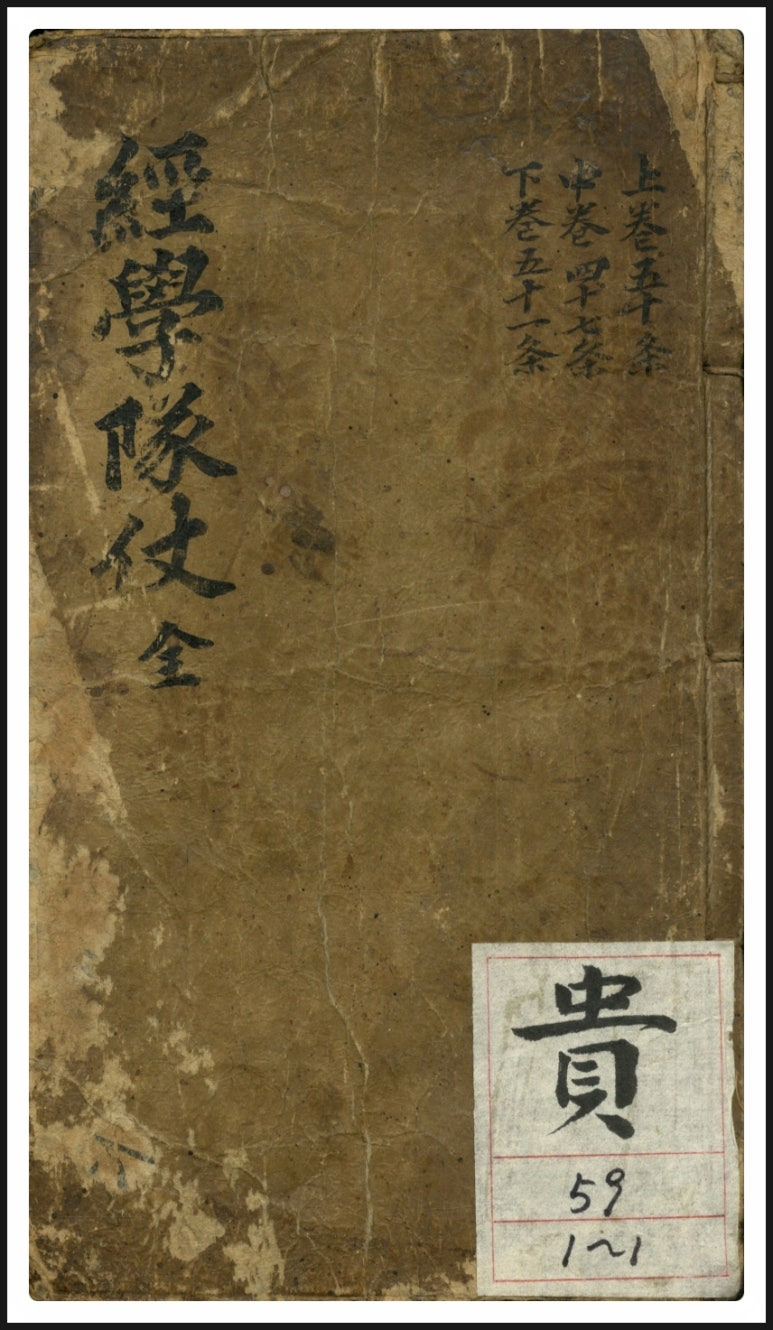 上巻五十条
中巻四十七条
下巻五十一条
經學隊仗 全
貴
59
1~1